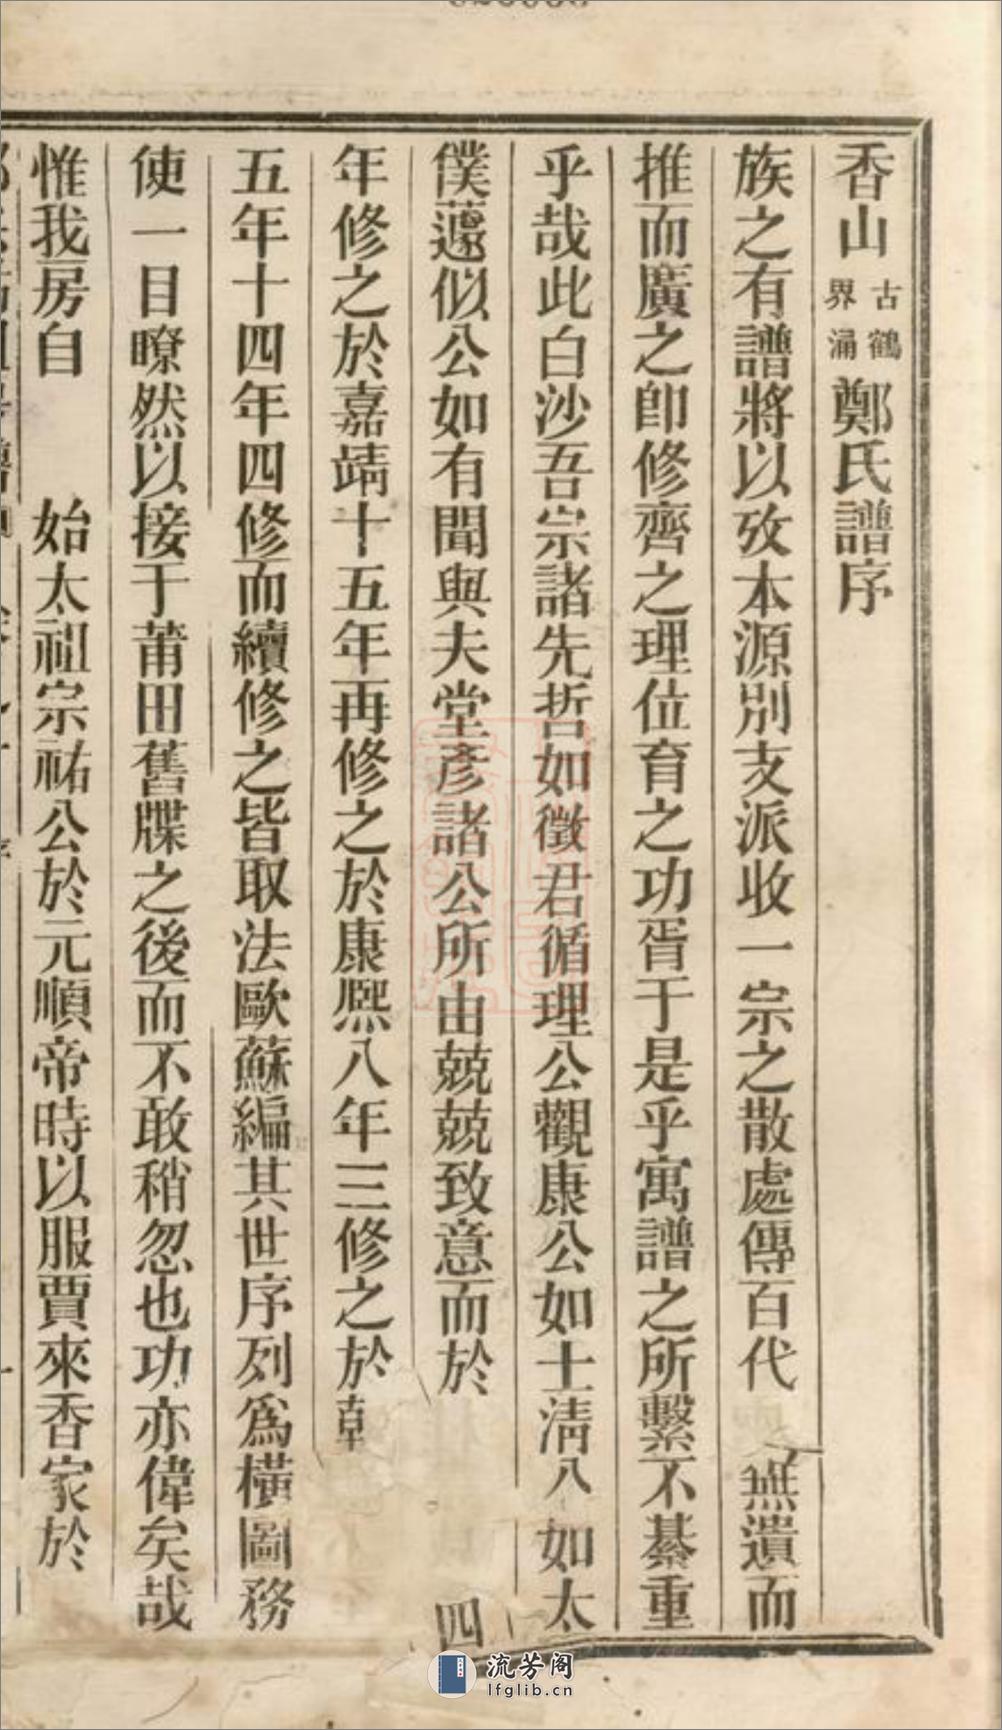 香山古鶴界涌鄭氏譜序
族之有譜將以攷本源別支派收一宗之散處傳百代無遺而
推而廣之卽修齊之理位育之功胥于是乎寓譜之所繫不綦重
乎哉此白沙吾宗諸先哲如徵君循理公觀康公如士淸公如太
僕蘧似公如有聞與夫堂彥諸公所由兢兢致意而於四
年修之於嘉靖十五年再修之於康熙八年三修之於
五年十四年四修而續修之皆取法歐蘇編其世序列爲橫圖務
使一目瞭然以接于莆田舊牒之後而不敢稍忽也功亦偉矣哉
惟我房自 始太祖宗祐公於元順帝時以服賈來香家於
流芳阁
lfglib.cn